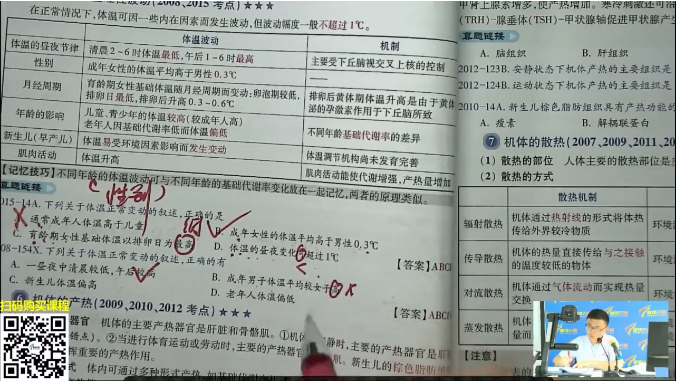 性波动(2008、2015 考点)★★★
在正常情况下,体温可因一些内在因素而发生波动,但波动幅度一般不超过1℃。
体温波动 机制
体温的昼夜节律 清晨2~6时体温最低,午后1~6时最高 主要受下丘脑视交叉上核的控制
性别 成年女性的体温平均高于男性0.3℃ ——
月经周期 育龄期女性基础体温随月经周期而变动:卵泡期较低,
排卵日最低,排卵后升高0.3~0.6℃
排卵后黄体期体温升高是由于黄体
泌的孕激素作用于下丘脑所致
年龄的影响 儿童、青少年的体温较高(较成年人高)
老年人因基础代谢率低而体温偏低
不同年龄基础代谢率的差异
新生儿(早产儿) 体温易受环境因素影响而发生变动 体温调节机构尚未发育完善
肌肉活动 体温升高 肌肉活动能使代谢增强,产热量增加
【记忆技巧】不同年龄的体温波动可与不同年龄的基础代谢率变化放在一起记忆,两者的原理类似。
真题链接
(性别)
015-14A.下列关于体温正常变动的叙述,正确的是
A.通常成年人体温高于儿童
B.成年女性的体温平均高于男性0.3℃
C.育龄期女性基础体温以排卵日为最高
低
D.体温的昼夜变化不超过1℃
【答案】ABC
08-154X.下列关于体温正常变动的叙述,正确的有
A.一昼夜中清晨较低,午后较高
B.成年男子体温平均较女子
C.新生儿体温偏高
D.老年人体温偏低
【答案】ABC
扫码购买课程
⑥ 机体的产热(2009、2010、2012 考点)★★★
器官 机体的主要产热器官是肝脏和骨骼肌。①机体
静时,主要的产热器官是
错点)。②当进行体育运动或劳动时,主要的产热器官
肌。新生儿的棕色脂肪
挥重要的产热作用。
式 体内可通过多种形式产热,如基础代谢
甲肾上腺素增多,使产热增加。寒冷刺激还可
(TRH)-腺垂体(TSH)-甲状腺轴促进甲状腺产
真题链接
A.脑组织 B.肝组织
2012-123B.安静状态下机体产热的主要组织是
2012-124B.运动状态下机体产热的主要组织是
2010-14A.新生儿棕色脂肪组织具有产热功能的
A.瘦素 B.解耦联蛋白
⑦ 机体的散热(2007、2009、2011、20
(1)散热的部位 人体主要的散热部位是
(2)散热的方式
散热机制
辐射散热 机体通过热射线的形式将体热
传给外界较冷物质
环境
传导散热 机体的热量直接传给与之接触
的温度较低的物体
环境
对流散热 机体通过气体流动而实现热量
交换
蒸发散热 机体
而
【注意】